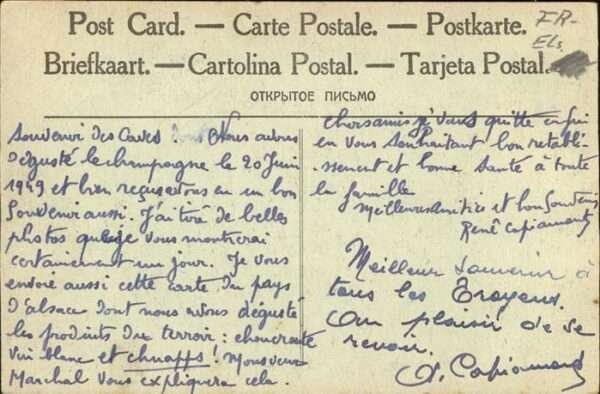 Post Card. — Carte Postale. — Postkarte.
Briefkaart. — Cartolina Postal. — Tarjeta Postal.
ОТКРЫТОЕ ПИСЬМО
FR-
ELs.
Souvenir des Caves Nous avons
dégusté le champagne le 20 Juin
1949 et bien reçus avons en un bon
Souvenir aussi. J'ai tiré de belles
photos que je vous montrerai
certainement un jour. Je vous
envoie aussi cette carte du pays
d'Alsace dont nous avons dégusté
les produits du terroir : choucroute
vin blanc et chnapps ! Monsieur
Marchal vous expliquera cela.
Chers amis je vous quitte
en vous souhaitant bon rétabli-
ssement et bonne santé à toute
la famille
Meilleures Amitiés et bon Souvenir
René Capiamont
Meilleur souvenir à
tous les Troyens.
Au plaisir de se
revoir.
Capiamont